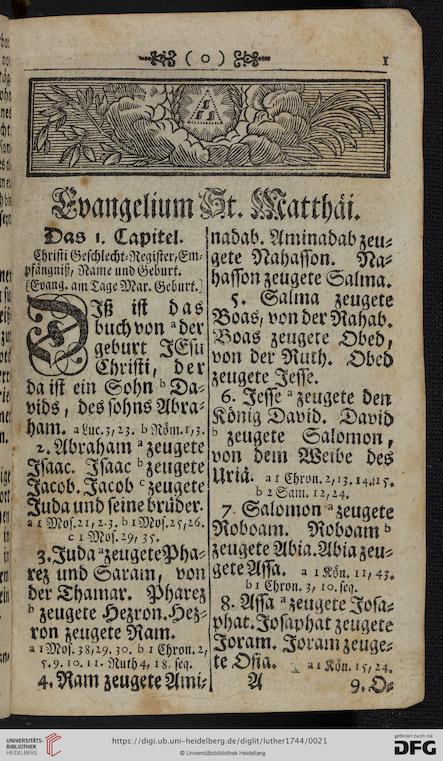 ( o )
1
Evangelium St. Matthäi.
Das 1. Capitel.
Christi Geschlecht-Register, Em-
pfängniß, Name und Geburt.
[Evang. am Tage Mar. Geburt.]
DIß ist das
buch von a der
geburt JEsu
Christi, der
da ist ein Sohn b Da-
vids, des sohns Abra-
ham. a Luc. 3, 23. b Röm. 1, 3.
2. Abraham a zeugete
Isaac. Isaac b zeugete
Jacob. Jacob c zeugete
Juda und seine brüder.
a 1 Mos. 21, 2. 3. b 1 Mos. 25, 26.
c 1 Mos. 29, 35.
3. Juda a zeugete Pha-
rez und Saram, von
der Thamar. Pharez
b zeugete Hezron. Hez-
ron zeugete Ram.
a 1 Mos. 38, 29. 30. b 1 Chron. 2,
5. 9. 10. 11. Ruth 4, 18. seq.
4. Ram zeugete Ami-
nadab. Aminadab zeu-
gete Nahasson. Na-
hasson zeugete Salma.
5. Salma zeugete
Boas, von der Rahab.
Boas zeugete Obed,
von der Ruth. Obed
zeugete Jesse.
6. Jesse a zeugete den
König David. David
b zeugete Salomon,
von dem Weibe des
Uriä. a 1 Chron. 2, 13. 14. 15.
b 2 Sam. 12, 24.
7. Salomon a zeugete
Roboam. Roboam b
zeugete Abia. Abia zeu-
gete Assa. a 1 Kön. 11, 43.
b 1 Chron. 3, 10. seq.
8. Assa a zeugete Josa-
phat. Josaphat zeugete
Joram. Joram zeuge-
te Osia. a 1 Kön. 15, 24.
A
9. O-
UNIVERSITÄTS-
BIBLIOTHEK
HEIDELBERG
https://digi.ub.uni-heidelberg.de/diglit/luther1744/0021
© Universitätsbibliothek Heidelberg
gefördert durch die
DFG